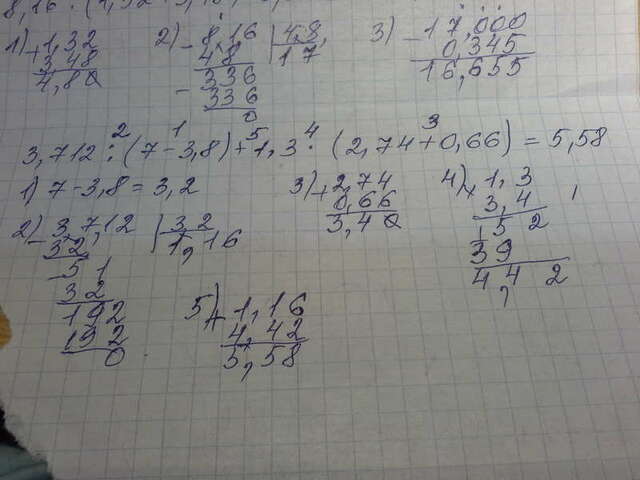 8,16 : (1,32 + 3,48)
1) + 1,32
3,48
4,80
2) - 8,16 | 4,8
48 | 1,7
- 336
336
0
3) - 17,000
0,345
16,655
3,712 : (7 - 3,8) + 1,3 · (2,74 + 0,66) = 5,58
2 1 5 4 3
1) 7 - 3,8 = 3,2
2) - 37,12 | 32
32 | 1,16
- 51
32
192
192
0
3) + 2,74
0,66
3,40
4) × 1,3
3,4
52
39
4,42
5) + 1,16
4,42
5,58